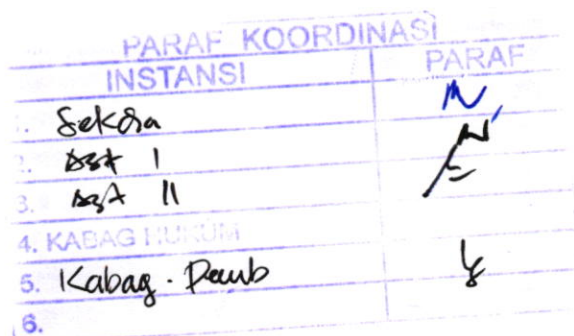 PARAF KOORDINASI
INSTANSI PARAF
1. Sekda
2. Ast I
3. Ast II
4. KABAG HUKUM
5. Kabag. Pemb
6.